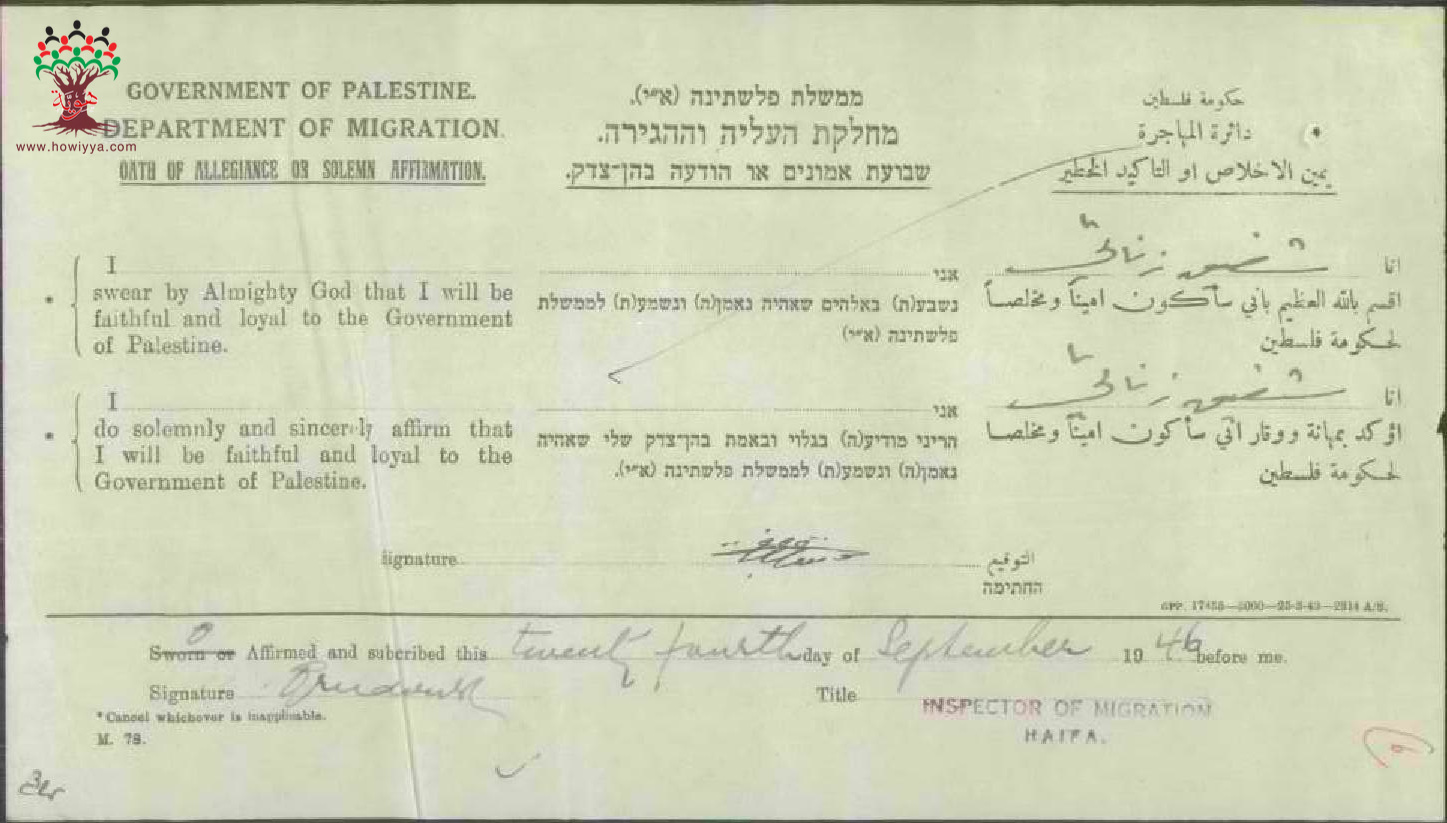 GOVERNMENT OF PALESTINE.
DEPARTMENT OF MIGRATION.
www.howiyya.com
OATH OF ALLEGIANCE OR SOLEMN AFFIRMATION.
ממשלת פלשתינה (א״י).
מחלקת העליה וההגירה.
שבועת אמונים או הודעה בהן־צדק.
حكومة فلسطين
دائرة المهاجرة
يمين الاخلاص او التأكيد الخطير
* I
swear by Almighty God that I will be
faithful and loyal to the Government
of Palestine.
אני
נשבע(ת) באלהים שאהיה נאמן(ה) ונשמע(ת) לממשלת
פלשתינה (א״י)
انا
اقسم بالله العظيم باني سأكون اميناً ومخلصاً
لحكومة فلسطين
* I
do solemnly and sincerely affirm that
I will be faithful and loyal to the
Government of Palestine.
אני
הריני מודיע(ה) בגלוי ובאמת בהן־צדק שלי שאהיה
נאמן(ה) ונשמע(ת) לממשלת פלשתינה (א״י).
انا
اؤكد بمهانة ووقار اني سأكون اميناً ومخلصا
لحكومة فلسطين
Signature
التوقيع
החתימה
GPP. 17455—5000—25-3-43—2814 A/S.
Sworn or Affirmed and subcribed this twenty fourth day of September 1946 before me.
Signature
Title INSPECTOR OF MIGRATION
HAIFA.
*Cancel whichever is inapplicable.
M. 78.